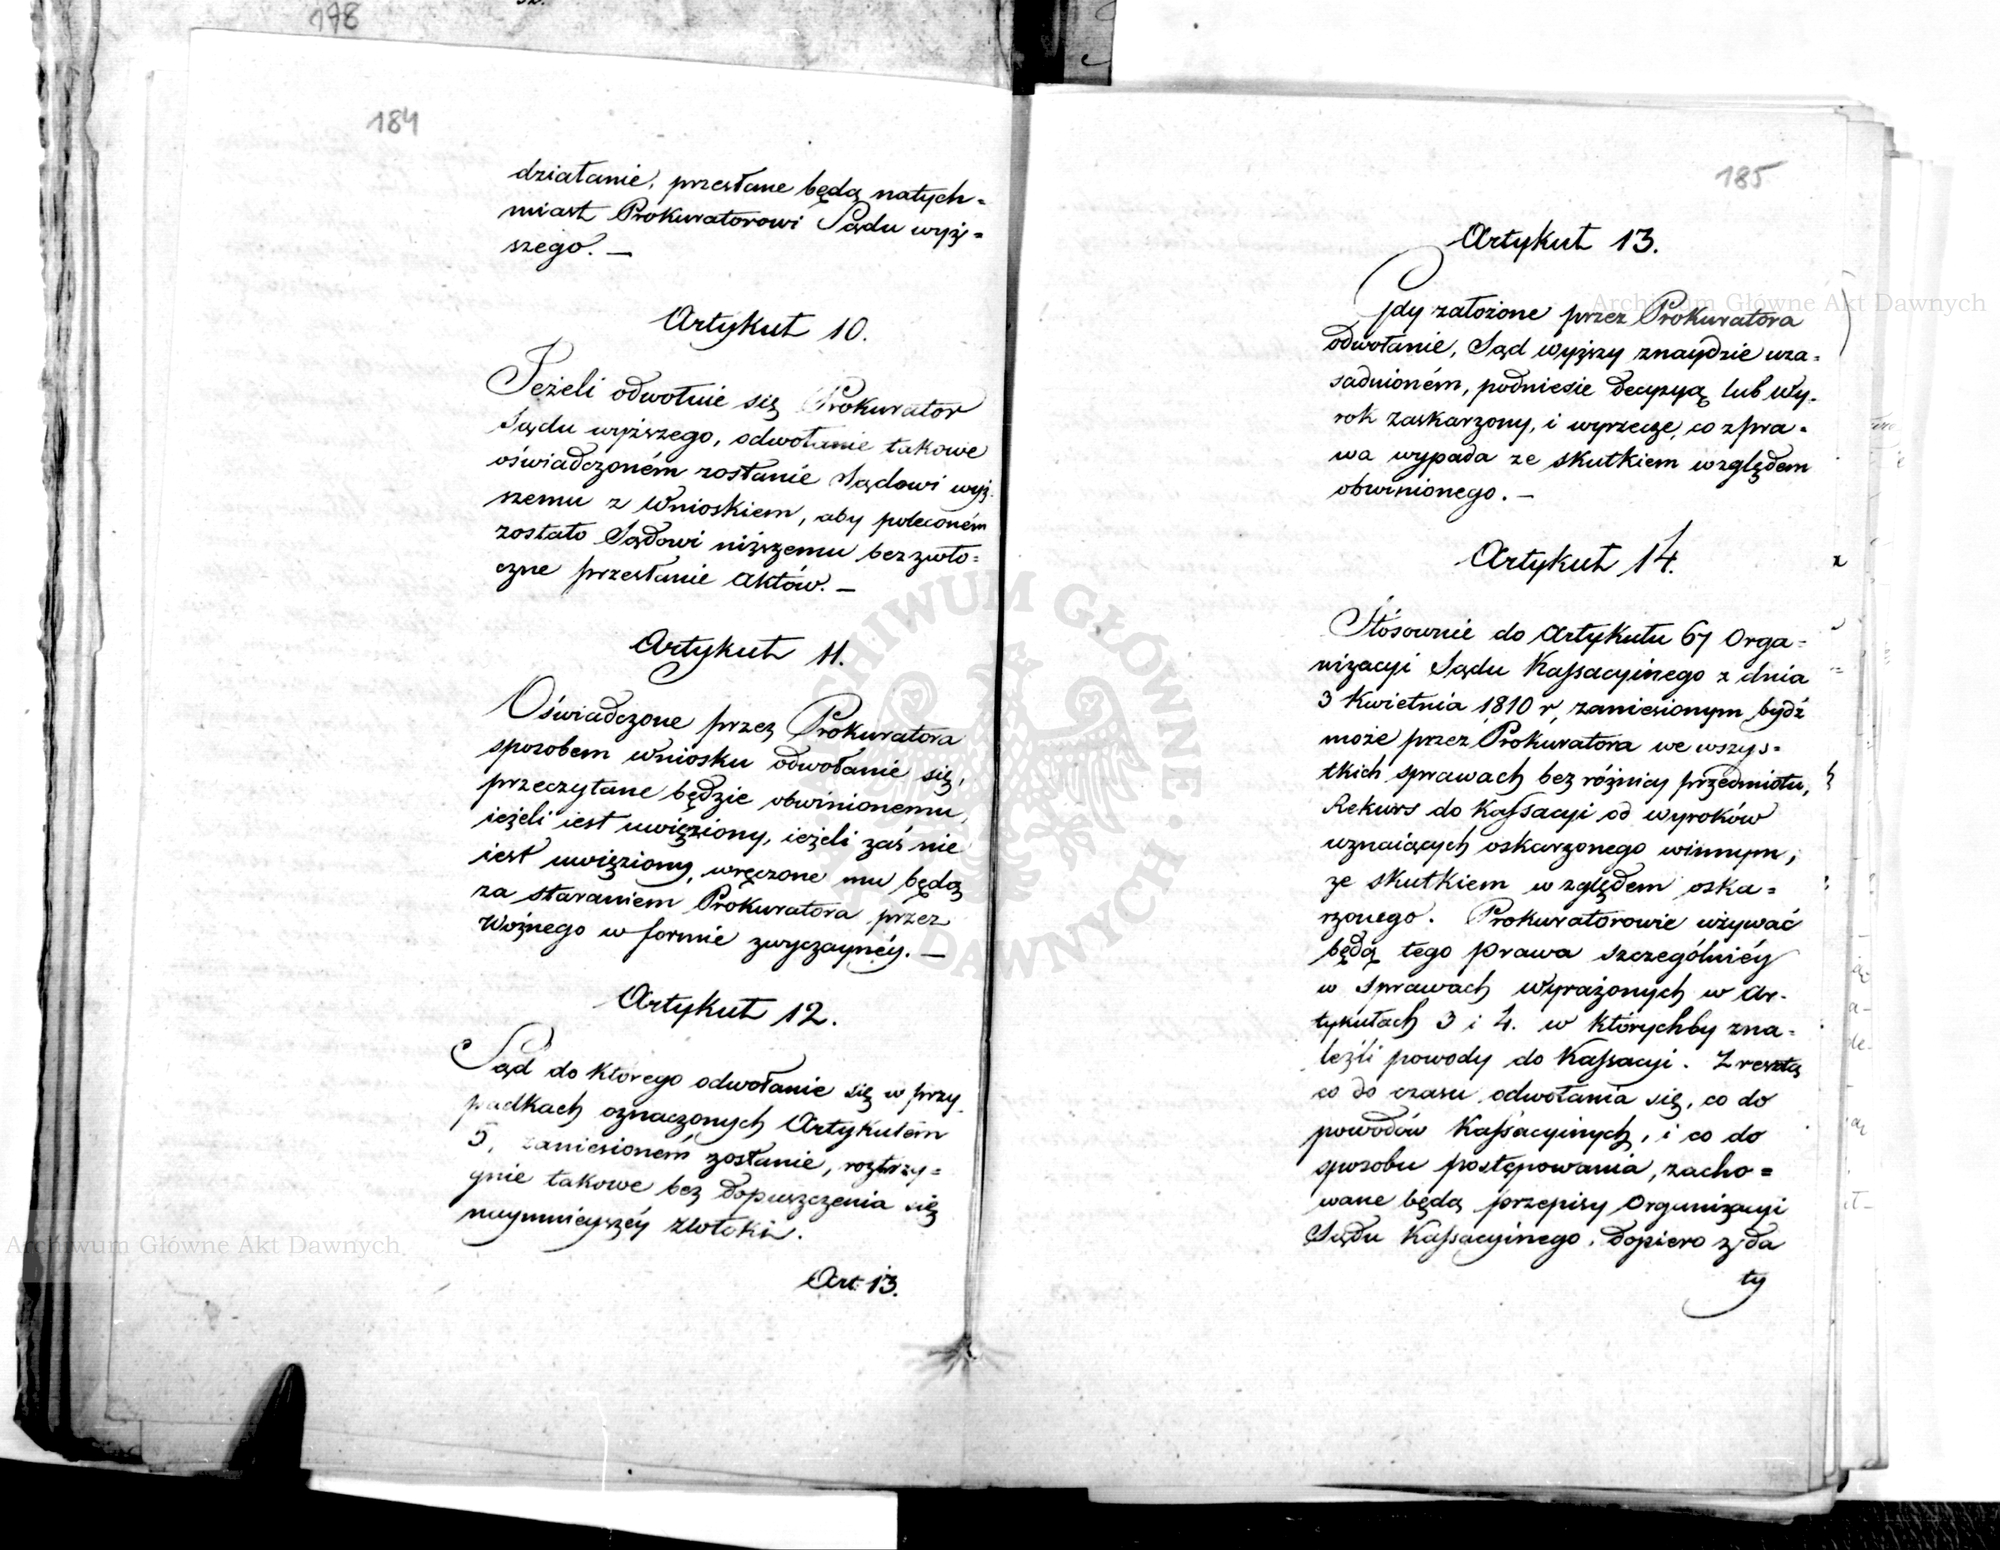 178
184
działanie, przesłane będą natych=
miast Prokuratorowi Sądu wyż=
szego. —
Artykuł 10.
Jeżeli odwołuie się Prokurator
Sądu wyższego, odwołanie takowe
oświadczoném zostanie Sądowi wyż=
szemu z Wnioskiem, aby poleconém
zostało Sądowi niższemu bezzwło=
czne przesłanie Aktów. —
Artykuł 11.
Oświadczone przez Prokuratora
sposobem wniosku odwołanie się,
przeczytane będzie obwinionemu,
ieżeli iest uwięziony, ieżeli zaś nie
iest uwięziony, wręczone mu będą
za staraniem Prokuratora przez
Woźnego w formie zwyczaynéy. —
Artykuł 12.
Sąd do którego odwołanie się w przy
padkach oznaczonych Artykułem
5, zaniesioném zostanie, roztrzy=
gnie takowe bez dopuszczenia się
naymnieyszéy zwłoki.
Art. 13.
185
Artykuł 13.
Gdy założone przez Prokuratora
odwołanie, Sąd wyższy znaydzie uza=
sadnioném, podniesie decyzyą lub Wy=
rok zaskarżony, i wyrzecze, co z pra=
wa wypada ze skutkiem względem
obwinionego. —
Artykuł 14.
Stósownie do Artykułu 67 Orga=
nizacyi Sądu Kassacyinego z dnia
3 Kwietnia 1810 r, zaniesionym bydź
może przez Prokuratora we wszys=
tkich sprawach bez różnicy przedmiotu,
Rekurs do Kassacyi od wyroków
uznaiących oskarżonego winnym,
ze skutkiem względem oska=
rzonego. Prokuratorowie używać
będą tego prawa szczególniéy
w sprawach wyrażonych w Ar=
tykułach 3 i 4. w którychby zna=
leźli powody do Kassacyi. Zresztą
co do czasu odwołania się, co do
powodów Kassacyinych, i co do
sposobu postępowania, zacho=
wane będą przepisy Organizacyi
Sądu Kassacyinego, dopiero z da
ty
Archiwum Główne Akt Dawnych
Archiwum Główne Akt Dawnych
ARCHIWUM GŁÓWNE AKT DAWNYCH